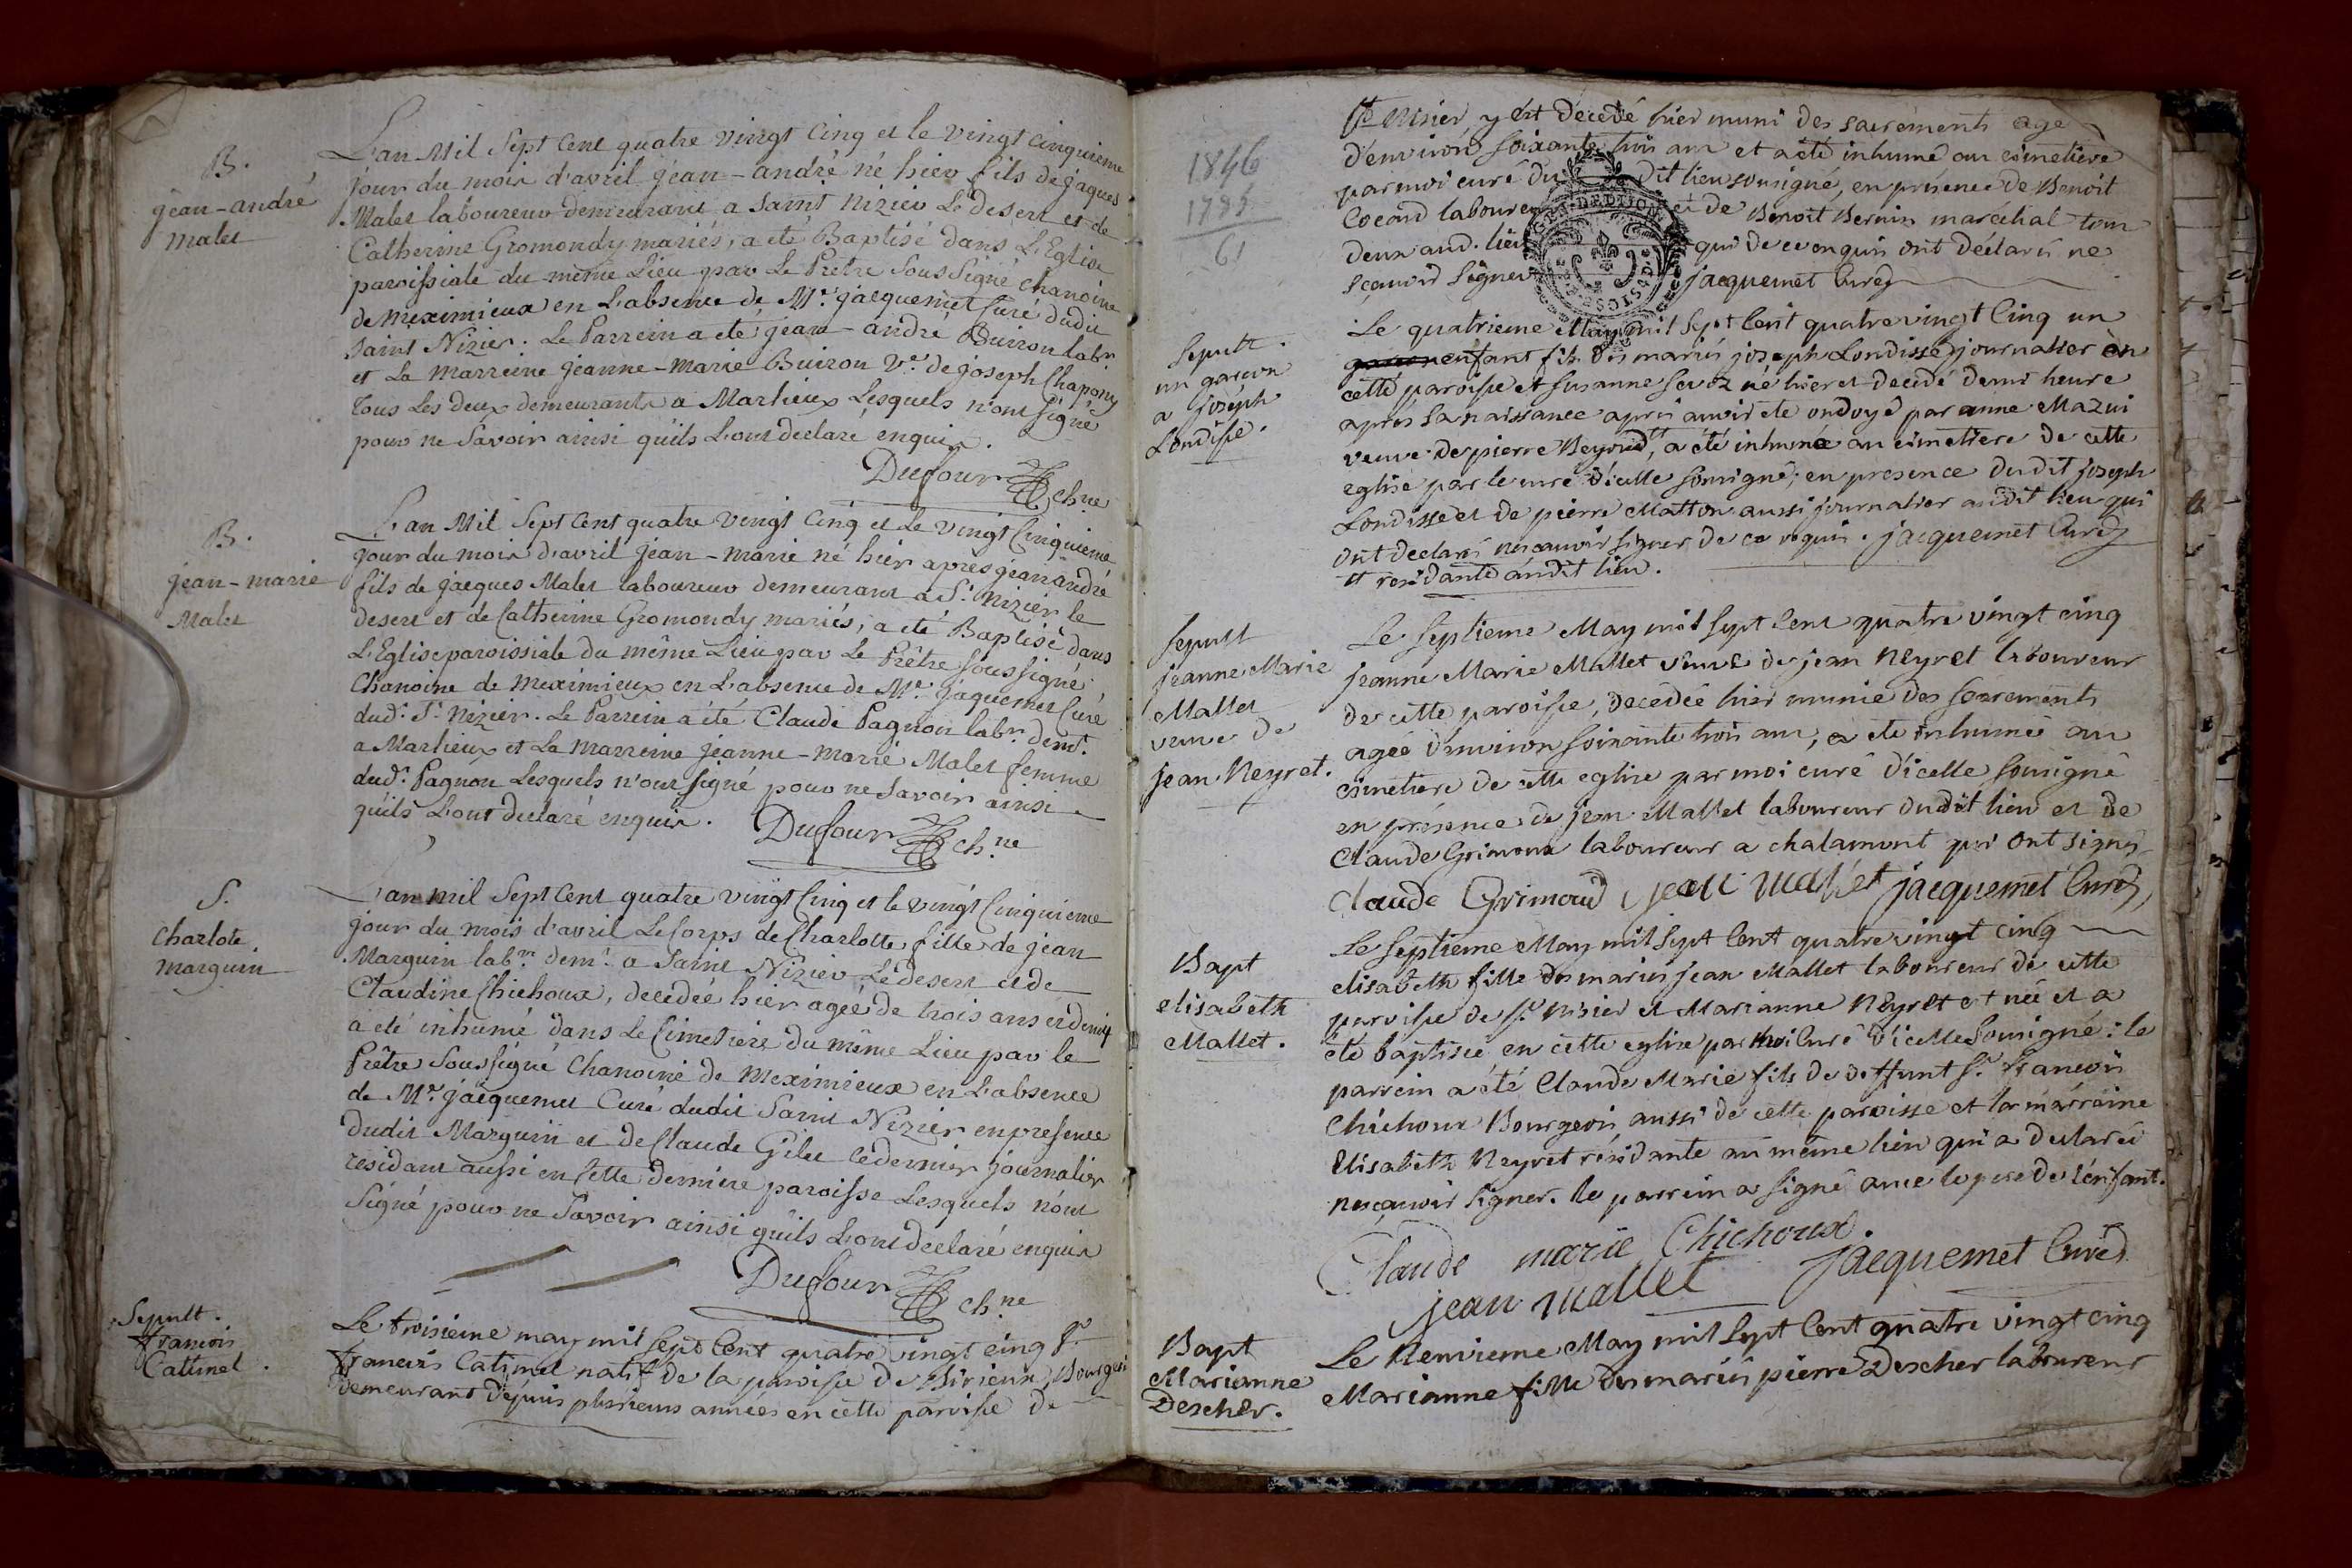 B.
jean-andré
malet
L'an Mil Sept Cent quatre vingt Cinq et le vingt cinquieme
jour du mois d'avril jean-andré né hier fils de jaques
Malet laboureur demeurant a Saint Nizier Le Desert et de
Catherine Gromondy mariés, a eté Baptisé dans L'Eglise
paroissiale du même Lieu par Le Prêtre Sous Signé chanoine
de Meximieux en L'absence de Mr. jacquemet Curé dudit
Saint Nizier. Le Parrein a eté jean-andré Buiron labr.
et La Marreine jeanne-Marie Buiron Ve. de joseph Chapony
tous Les deux demeurants a Marlieux Lesquels n'ont Signé
pour ne Savoir ainsi qu'ils L'ont declaré enquis.
Dufour ch.ne
B.
jean-marie
Malet
L'an Mil Sept Cent quatre Vingt Cinq et Le vingt Cinquieme
jour du mois d'avril jean-marie né hier après jean andré
fils de jacques Malet laboureur demeurant a St. Nizier le
desert et de Catherine Gromondy mariés, a eté Baptisé dans
L'Eglise paroissiale du même Lieu par Le Prêtre soussigné
Chanoine de Meximieux en L'absence de Mr. jaquemet Curé
dud. St. Nizier. Le Parrein a été Claude Pagnon labr. demt.
a Marlieux et La marreine jeanne-Marie Malet femme
dud. Pagnon Lesquels n'ont signé pour ne Savoir ainsi
qu'ils L'ont declaré enquis.
Dufour ch.ne
S.
Charlote
marguin
L'an mil Sept Cent quatre vingt Cinq et le vingt Cinquieme
jour du mois d'avril Le Corps de Charlotte fille de jean
Marguin labr. demt. a Saint Nizier Le Desert et de
Claudine Chichoux, decedée hier agée de trois ans et demy
a eté inhumé dans Le Cimetiere du même Lieu par le
Prêtre Soussigné Chanoine de Meximieux en L'absence
de Mr. jacquemet Curé dudit Saint Nizier en presence
dudit Marguin et de Claude Gilet ce dernier journalier
residant aussi en Cette derniere paroisse Lesquels n'ont
Signé pour ne Savoir ainsi qu'ils L'ont declaré enquis
Dufour ch.ne
Sepult.
francois
Catimel.
Le troisieme may mil sept Cent quatre vingt cinq Sr.
francois Catimel natif de la paroisse de Birieux, Bourgeois
demeurant depuis plusieurs années en cette paroisse de
1846
1785
61
St. Nisier y est decedé hier muni des sacrements age
d'environ soixante trois ans et a été inhumé au cimetiere
par moi curé du dit lieu sousigné, en présence de Benoit
Cocand laboureur et de Benoit Bernin maréchal tous
deux aud. lieu qui de ce enquis ont déclaré ne
sçauvoir signer jacquemet Curé
Sepult.
un garcon
a joseph
Londisse.
Le quatrieme May mil sept Cent quatre vingt Cinq un
enfant fils des mariés joseph Londisse journalier en
cette paroisse et Susanne né hier et decedé demi heure
après sa naissance après auvoir ete ondoyé par anne Mazui
veuve de pierre Beyrud, a été inhumé au cimetiere de cette
eglise par le curé d'icelle sousigné; en presence dudit joseph
Londisse et de pierre Matton aussi journalier audit lieu qui
ont declaré ne sçauvoir signer de ce requis. jacquemet Curé
et residante audit lieu.
Sepult
jeanne Marie
Mallet
veuve de
jean Neyret.
Le septieme May mil sept Cent quatre vingt cinq
jeanne Marie Mallet veuve de jean Neyret laboureur
de cette paroisse, decédée hier munie des sacrements
agée d'environ soixante trois ans, a ete inhumée au
cimetiere de cette eglise par moi curé d'icelle sousigné
en présence de jean Mallet laboureur dudit lieu et de
Claude Grimoux laboureur a chalamont qui ont signé
Claude Grimoud jean mallet jacquemet Curé
Bapt
elisabeth
Mallet.
Le septieme May mil sept Cent quatre vingt cinq
elisabeth fille des mariés jean Mallet laboureur de cette
paroisse de St. Nisier et Marianne Neyret est née et a
été baptisée en cette eglise par moi Curé d'icelle sousigné: le
parrein a été Claude Marie fils de deffunt Sr. francois
Chichoux Bourgeois aussi de cette paroisse et la marraine
Elisabeth Neyret résidante au même lieu qui a declaré
ne sçauvoir signer. le parrein a signé avec le pere de l'enfant.
Claude marie Chichoux.
jean mallet jacquemet Curé
Bapt
Marianne
Descher.
Le Neuvieme May mil sept Cent quatre vingt cinq
Marianne fille des mariés pierre Descher laboureur